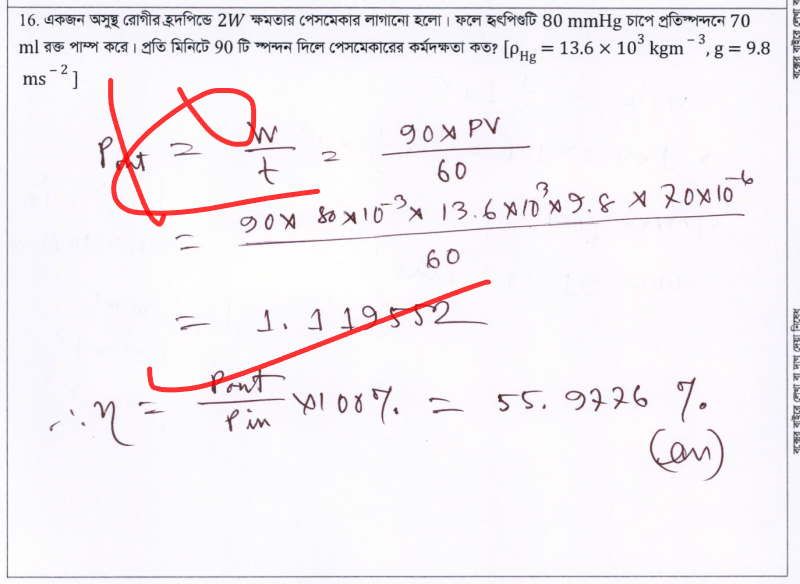 16. একজন অসুস্থ রোগীর হৃদপিন্ডে 2W ক্ষমতার পেসমেকার লাগানো হলো। ফলে হৃৎপিণ্ডটি 80 mmHg চাপে প্রতিস্পন্দনে 70
ml রক্ত পাম্প করে। প্রতি মিনিটে 90 টি স্পন্দন দিলে পেসমেকারের কর্মদক্ষতা কত? [ρ_Hg = 13.6 × 10³ kgm⁻³, g = 9.8
ms⁻²]
P_out = W/t = 90 × PV / 60
= 90 × 80×10⁻³ × 13.6×10³×9.8 × 70×10⁻⁶ / 60
= 1.119552
∴ η = Pout/Pin ×100% = 55.9776 %.
(an)